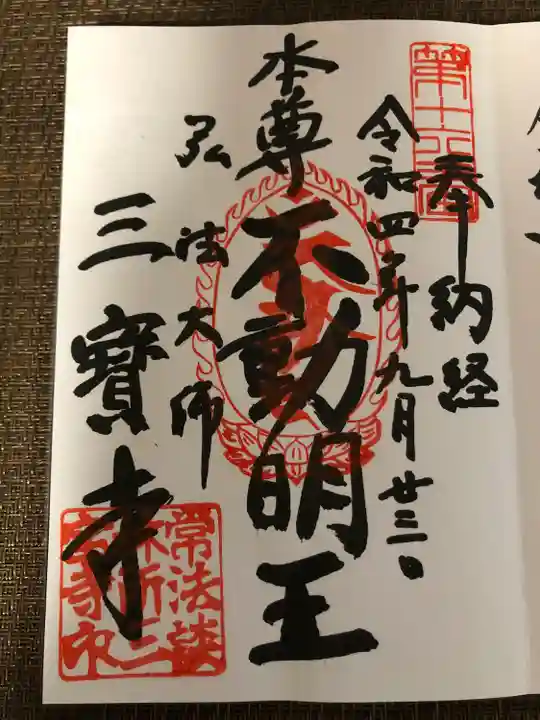 奉納経
令和四年九月廿三日
本尊 不動明王
弘法大師
三寶寺
常法談
林所三
寺印